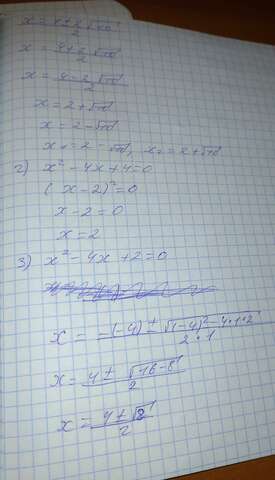 x = 4±2√10/2
x = 4+2√10/2
x = 4-2√10/2
x = 2+√10
x = 2-√10
x₁ = 2-√10, x₂ = 2+√10
2) x² - 4x + 4 = 0
(x-2)² = 0
x - 2 = 0
x = 2
3) x² - 4x + 2 = 0
x = -(-4) ± √(-4)² - 4·1·2/2·1
x = 4 ± √16-8/2
x = 4 ± √8/2